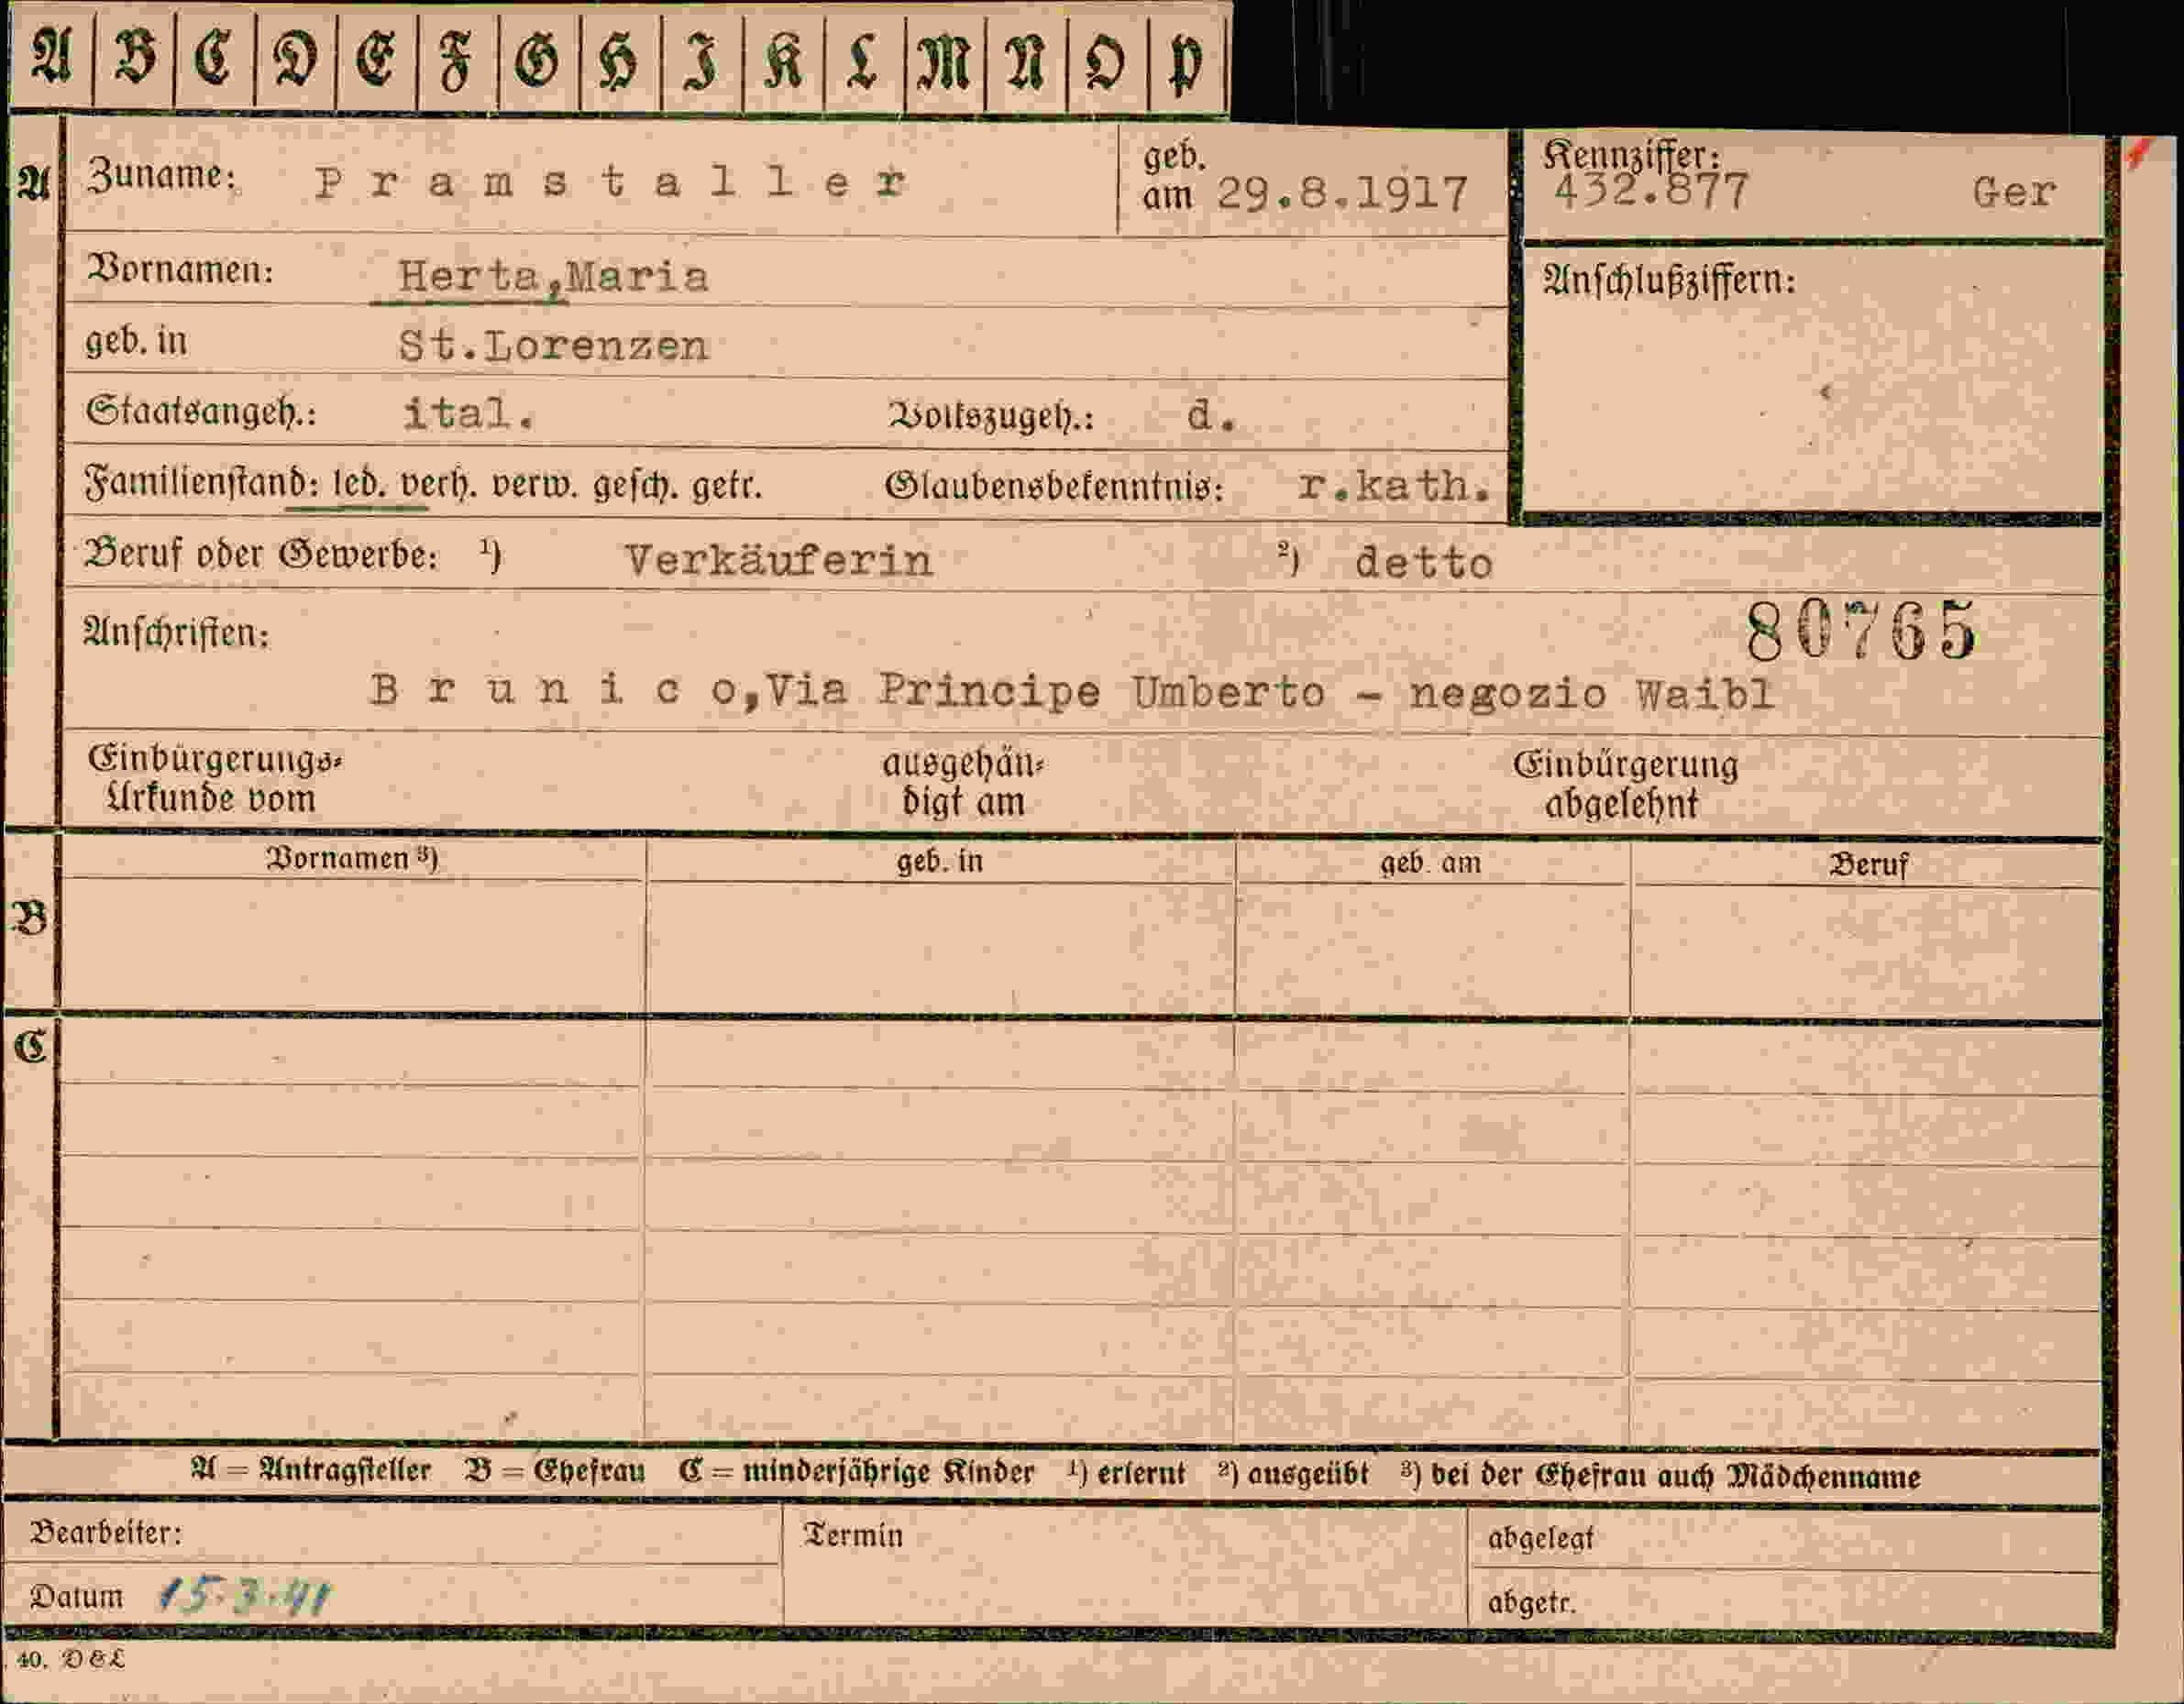 A B C D E F G H I K L M N O P
A Zuname: Pramstaller geb. am 29.8.1917 Kennziffer: 432.877 Ger
Vornamen: Herta,Maria Anschlußziffern:
geb. in St.Lorenzen
Staatsangeh.: ital. Volkszugeh.: d.
Familienstand: led. verh. verw. gesch. getr. Glaubensbekenntnis: r.kath.
Beruf oder Gewerbe: ¹) Verkäuferin ²) detto
Anschriften: 80765
Brunico,Via Principe Umberto - negozio Waibl
Einbürgerungs- ausgehän- Einbürgerung
Urkunde vom digt am abgelehnt
Vornamen ³) geb. in geb. am Beruf
B
C
A = Antragsteller B = Ehefrau C = minderjährige Kinder ¹) erlernt ²) ausgeübt ³) bei der Ehefrau auch Mädchenname
Bearbeiter: Termin abgelegt
Datum 15.3.41 abgetr.
40. D&L